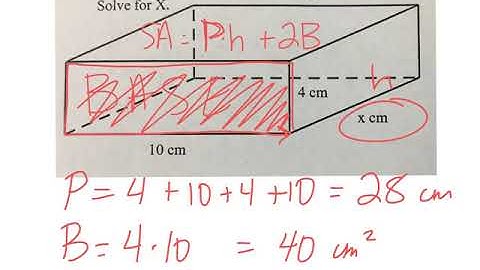 Solve for X.
SA = Ph + 2B
BASE
h
4 cm
x cm
10 cm
P = 4 + 10 + 4 + 10 = 28 cm
B = 4 · 10 = 40 cm²